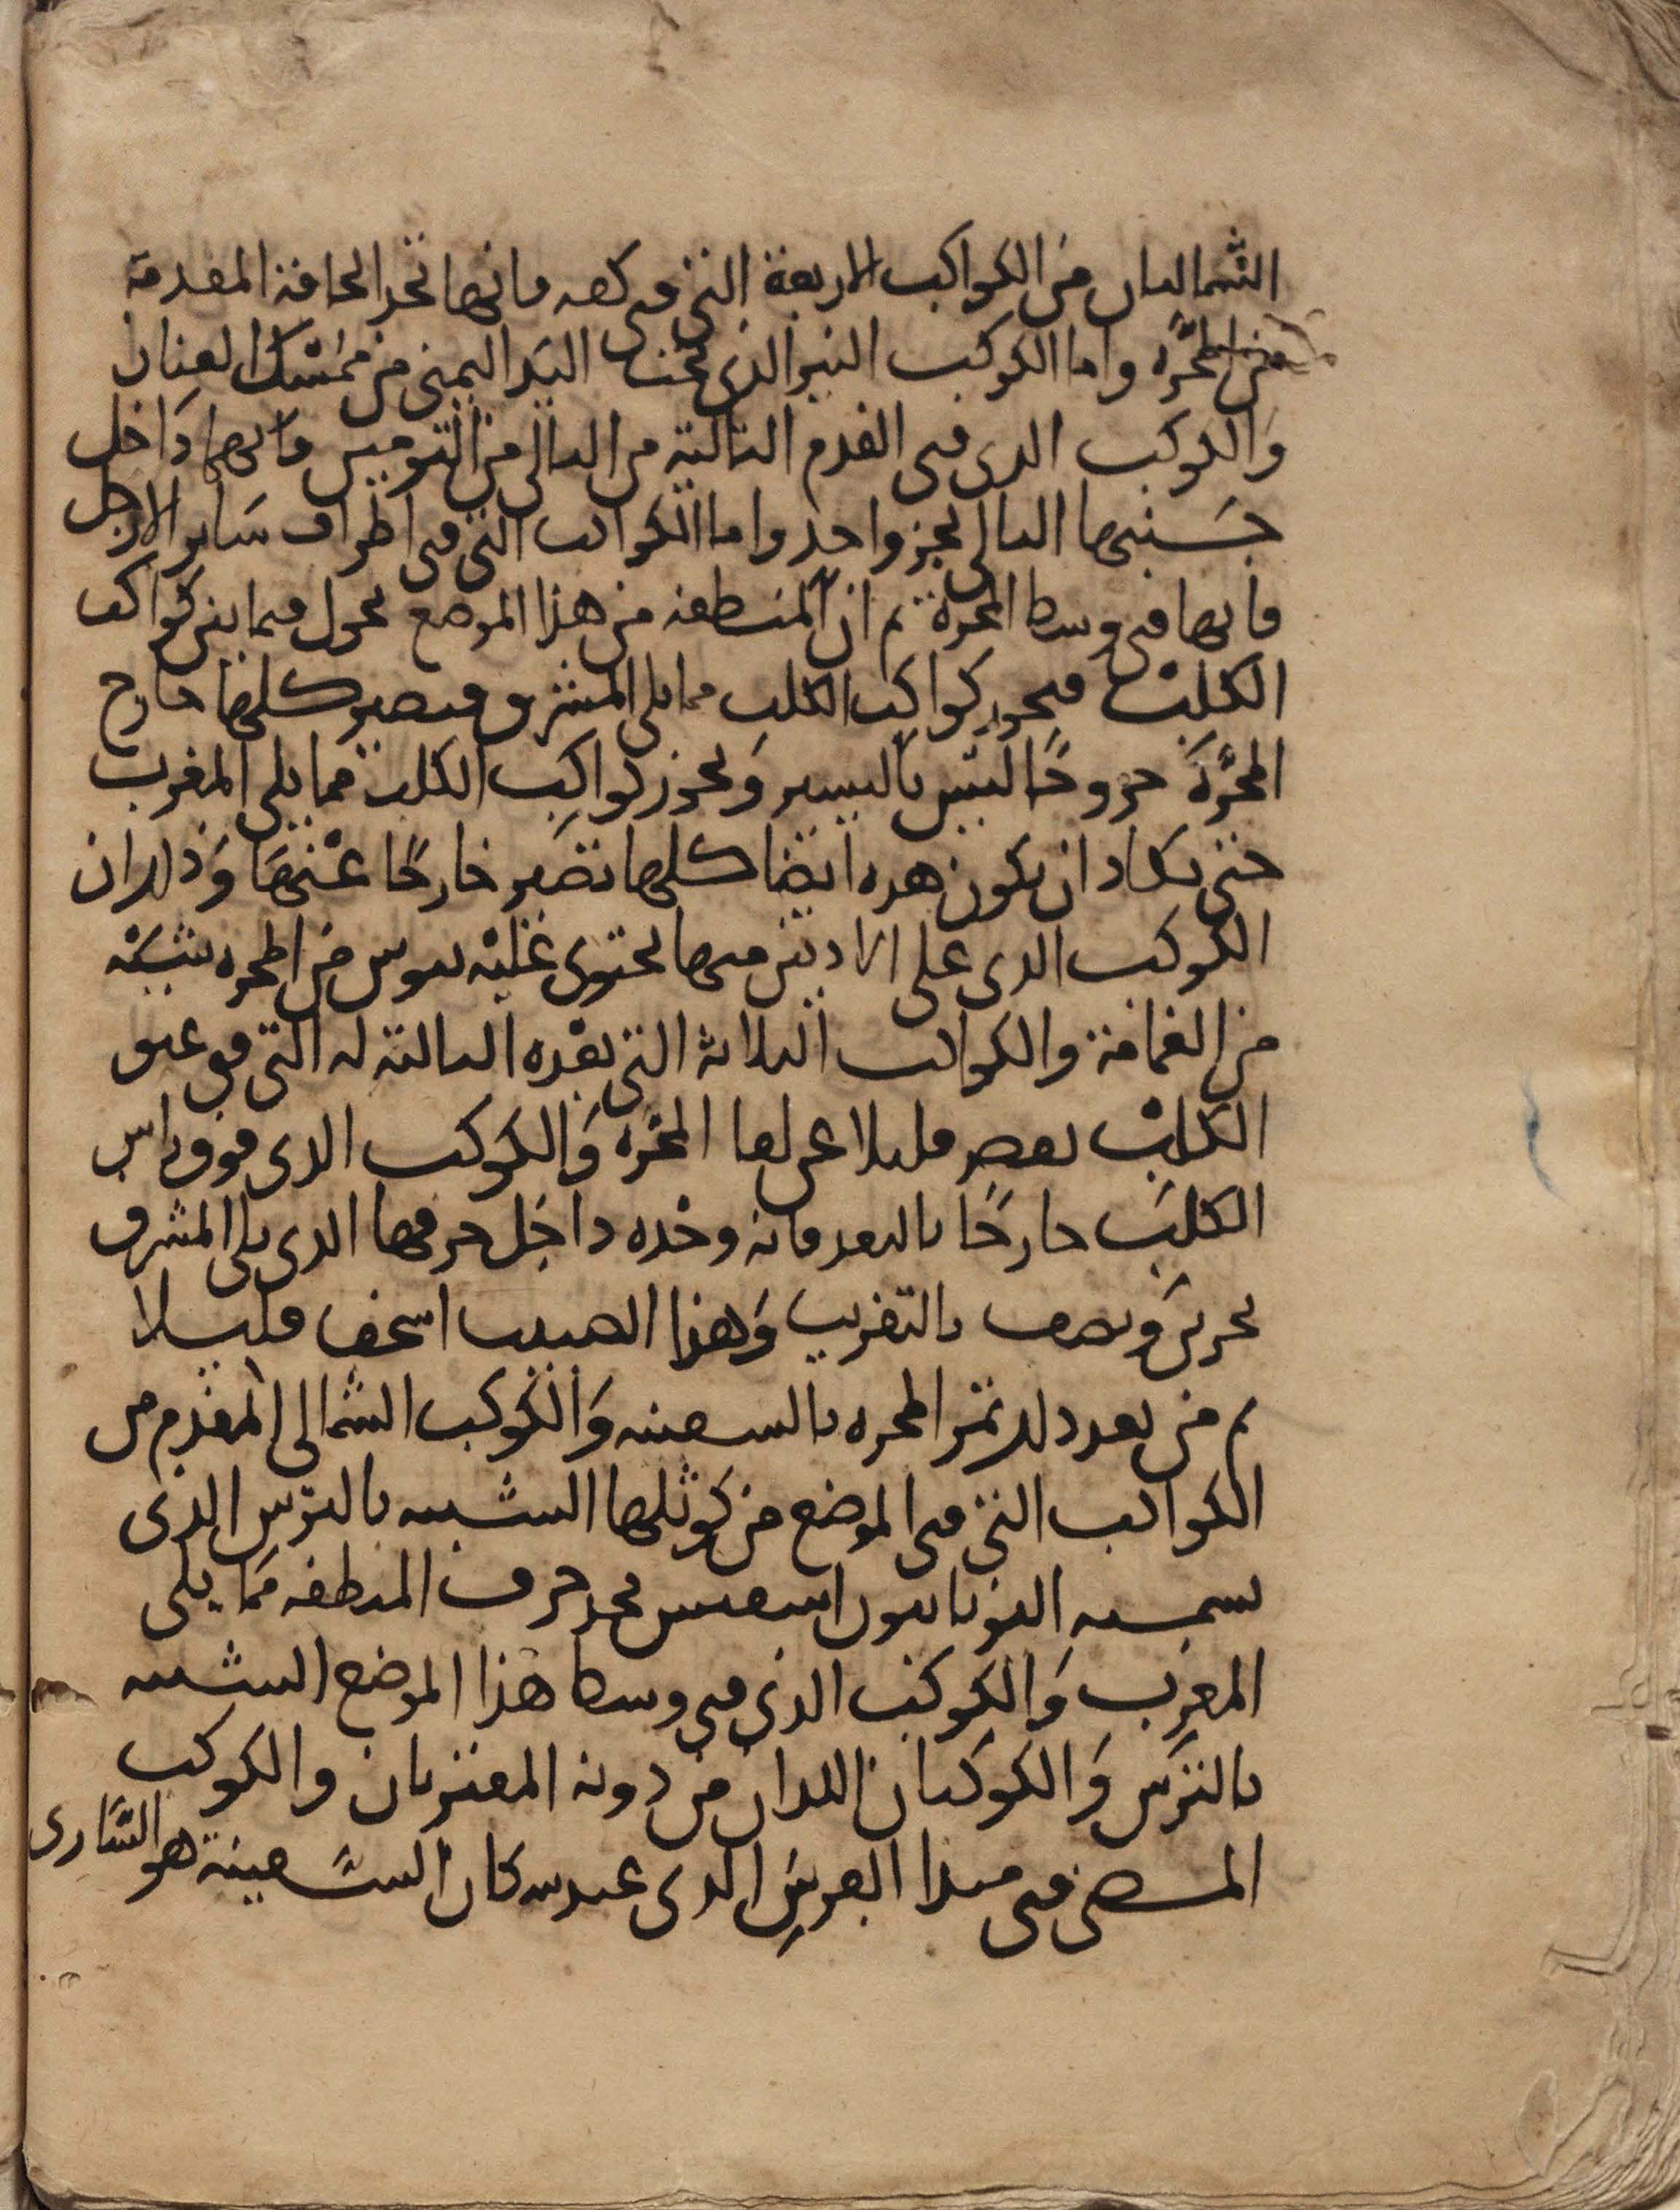 الشماليان من الكواكب الاربعة التي في كفه فانها تحد الحافة المقدمة
من المجرة واما الكوكب النير الذي تحت اليد اليمنى من ممسك العنان
والكوكب الذي في القدم التالية من التالي من التوميين فانهما داخل
جنبيها التالي بجزو واحد واما الكواكب التي في اطراف ساير الارجل
فانها في وسط المجرة ثم ان المنطقة من هذا الموضع تجول فيما بين كواكب
الكلب فيحوز كواكب الكلب مما يلي المشرق فيصير كلها خارج
المجرة خروجا ليس باليسير وتحوز كواكب الكلب مما يلي المغرب
حتى يكاد ان يكون هذه ايضا كلها تصير خارجا عنها وذلك ان
الكوكب الذي على الاذنين منها يحتوي عليه قوس من المجرة شبيه
من الغمامة والكواكب الثلاثة التي بعده التالية له التي في عنق
الكلب تقصر قليلا عن لقا المجرة والكوكب الذي فوق راس
الكلب خارجا بالبعد فانه وحده داخل حرفها الذي يلي المشرق
بجزين ونصف بالتقريب وهذا اسخف قليلا
ثم من بعد ذلك تمر المجرة بالسفينة والكوكب الشمالي المقدم من
الكواكب التي في الموضع من كوثلها الشبيه بالترس الذي
يسميه اليونانيون يحد حرف المنطقة مما يلي
المغرب والكوكب الذي في وسط هذا الموضع الشبيه
بالترس والكوكبان اللذان من دونه المقتربان والكوكب
المضي في مبدا الذي عند سكان السفينة هو الساري